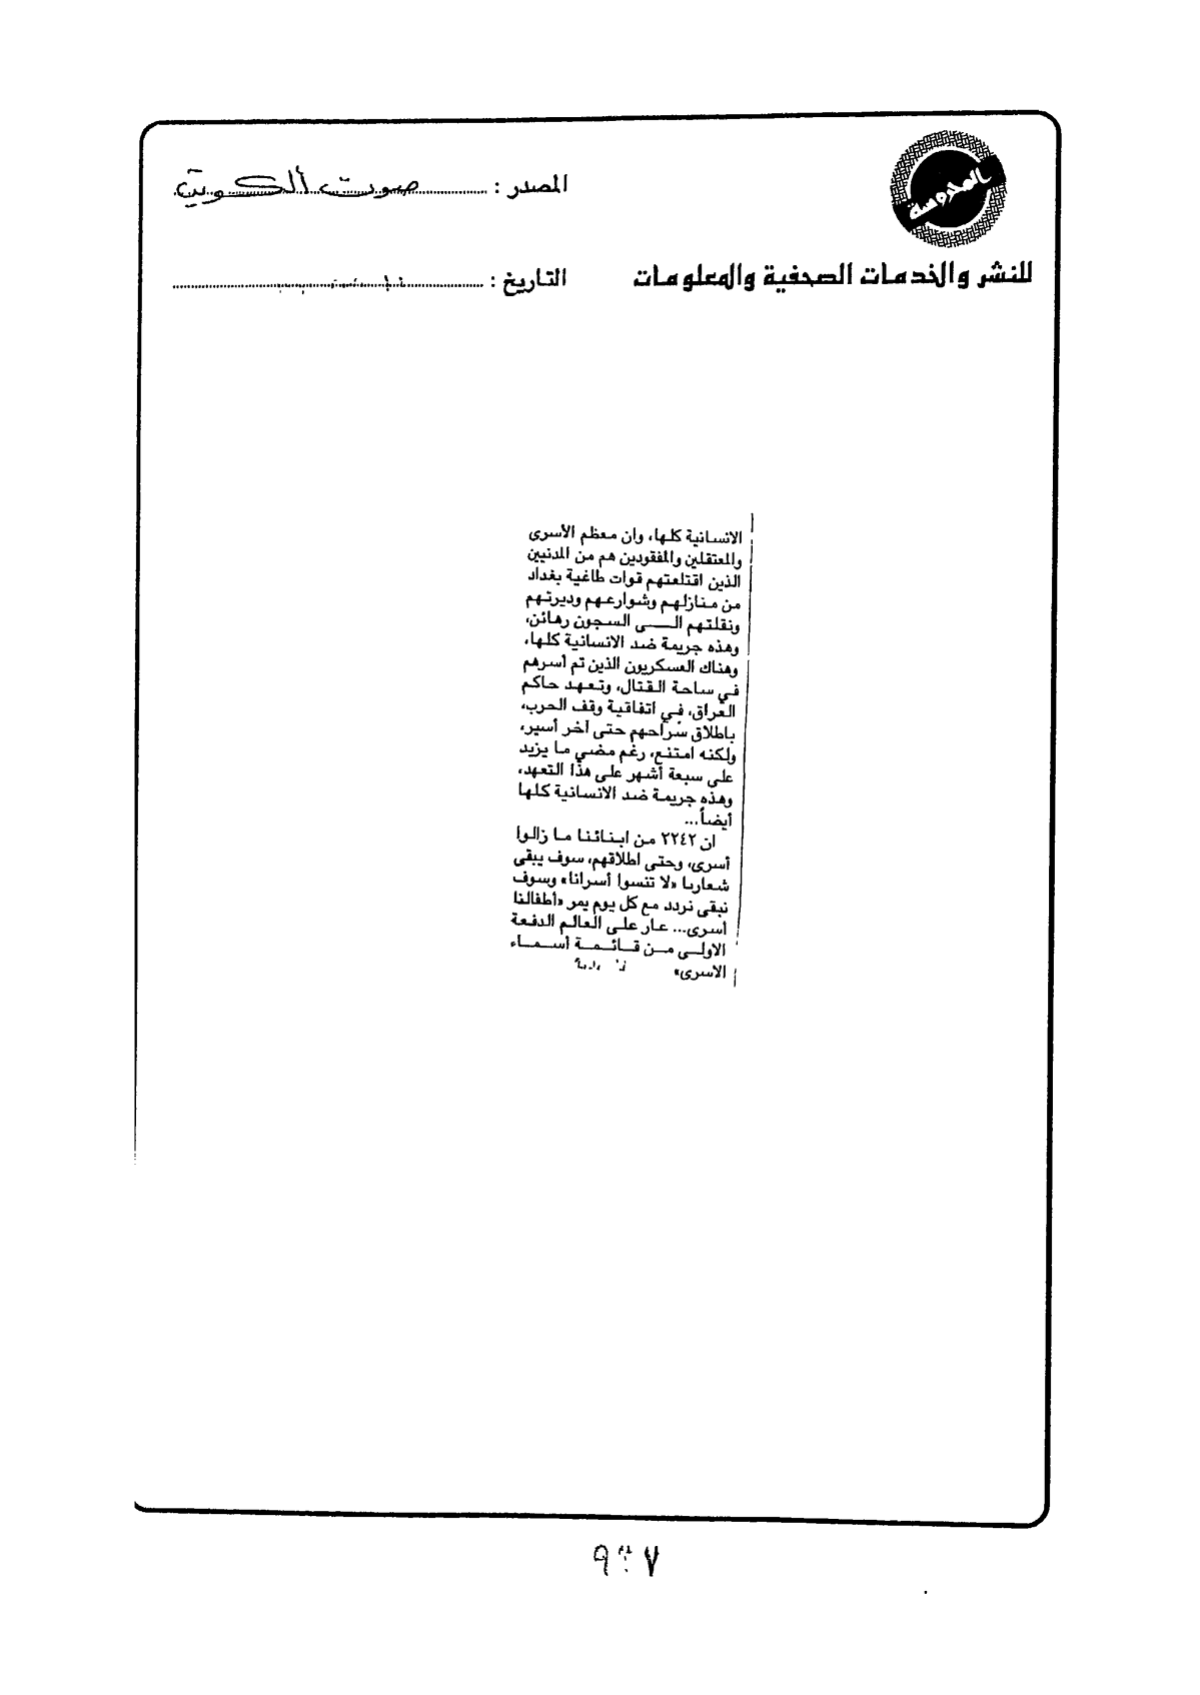 المحروسة
المصدر : صوت الكويت
للنشر والخدمات الصحفية والمعلومات
التاريخ :
الانسانية كلها، وان معظم الأسرى
والمعتقلين والمفقودين هم من المدنيين
الذين اقتلعتهم قوات طاغية بغداد
من منازلهم وشوارعهم وديرتهم
ونقلتهم الى السجون رهائن،
وهذه جريمة ضد الانسانية كلها،
وهناك العسكريون الذين تم أسرهم
في ساحة القتال، وتعهد حاكم
العراق، في اتفاقية وقف الحرب،
باطلاق سراحهم حتى آخر أسير،
ولكنه امتنع، رغم مضي ما يزيد
على سبعة أشهر على هذا التعهد،
وهذه جريمة ضد الانسانية كلها
أيضاً...
ان ٢٢٤٢ من ابنائنا ما زالوا
أسرى، وحتى اطلاقهم، سوف يبقى
شعارنا «لا تنسوا أسرانا» وسوف
نبقى نردد مع كل يوم يمر «أطفالنا
أسرى... عار على العالم الدفعة
الاولى من قائمة أسماء
الاسرى»